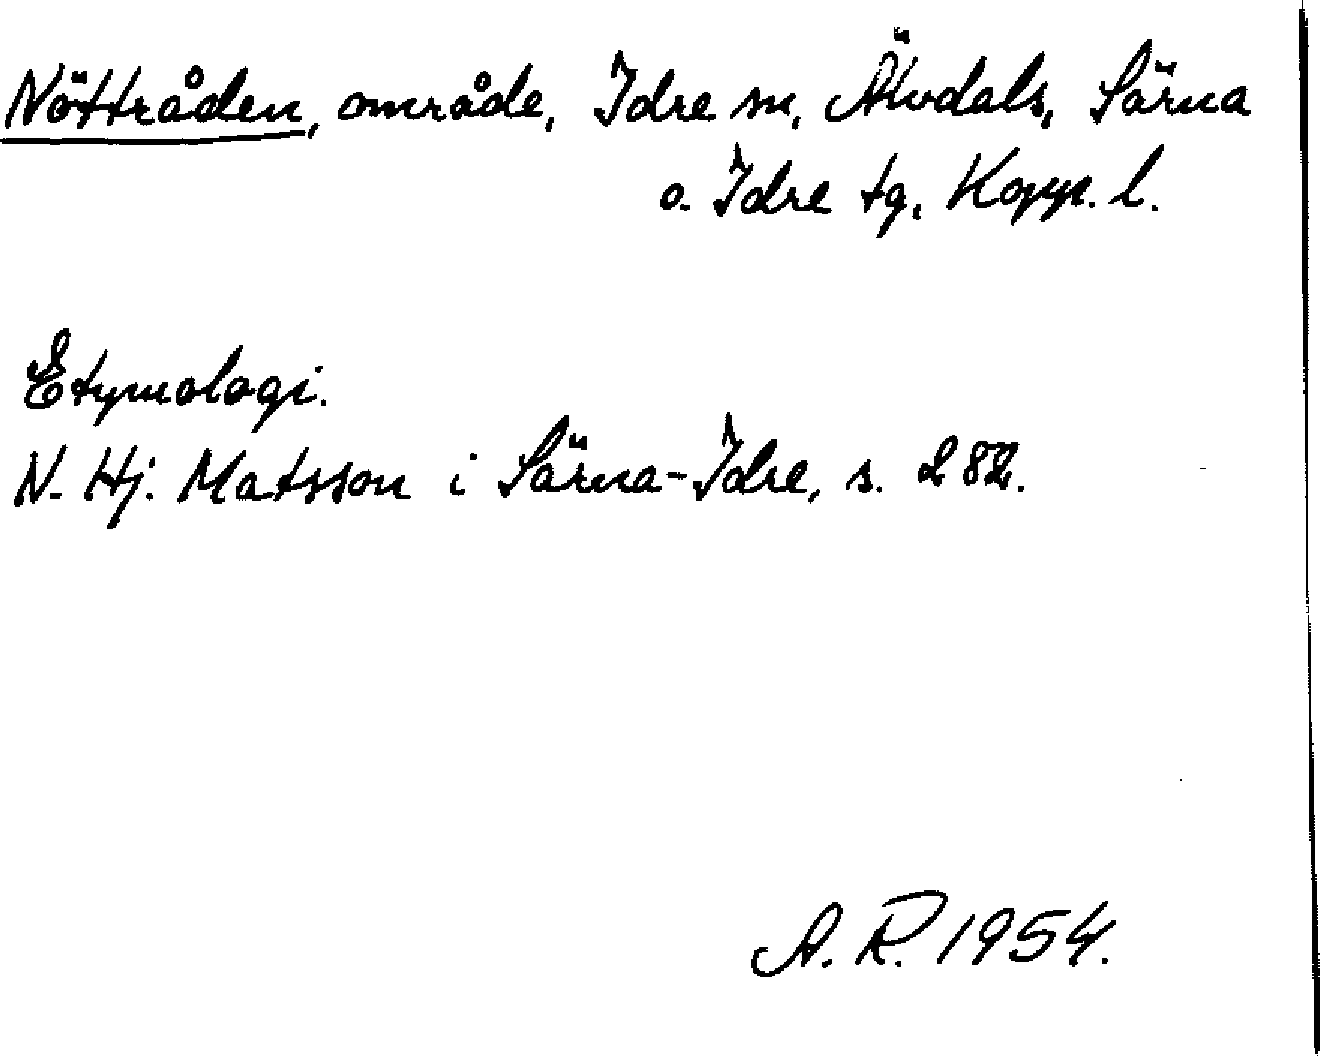 Nöttråden, område, Idre sn, Älvdals, Särna
o. Idre tg, Kopp. l.
Etymologi.
N. Hj. Matsson i Särna-Idre, s. 282.
A. R. 1954.